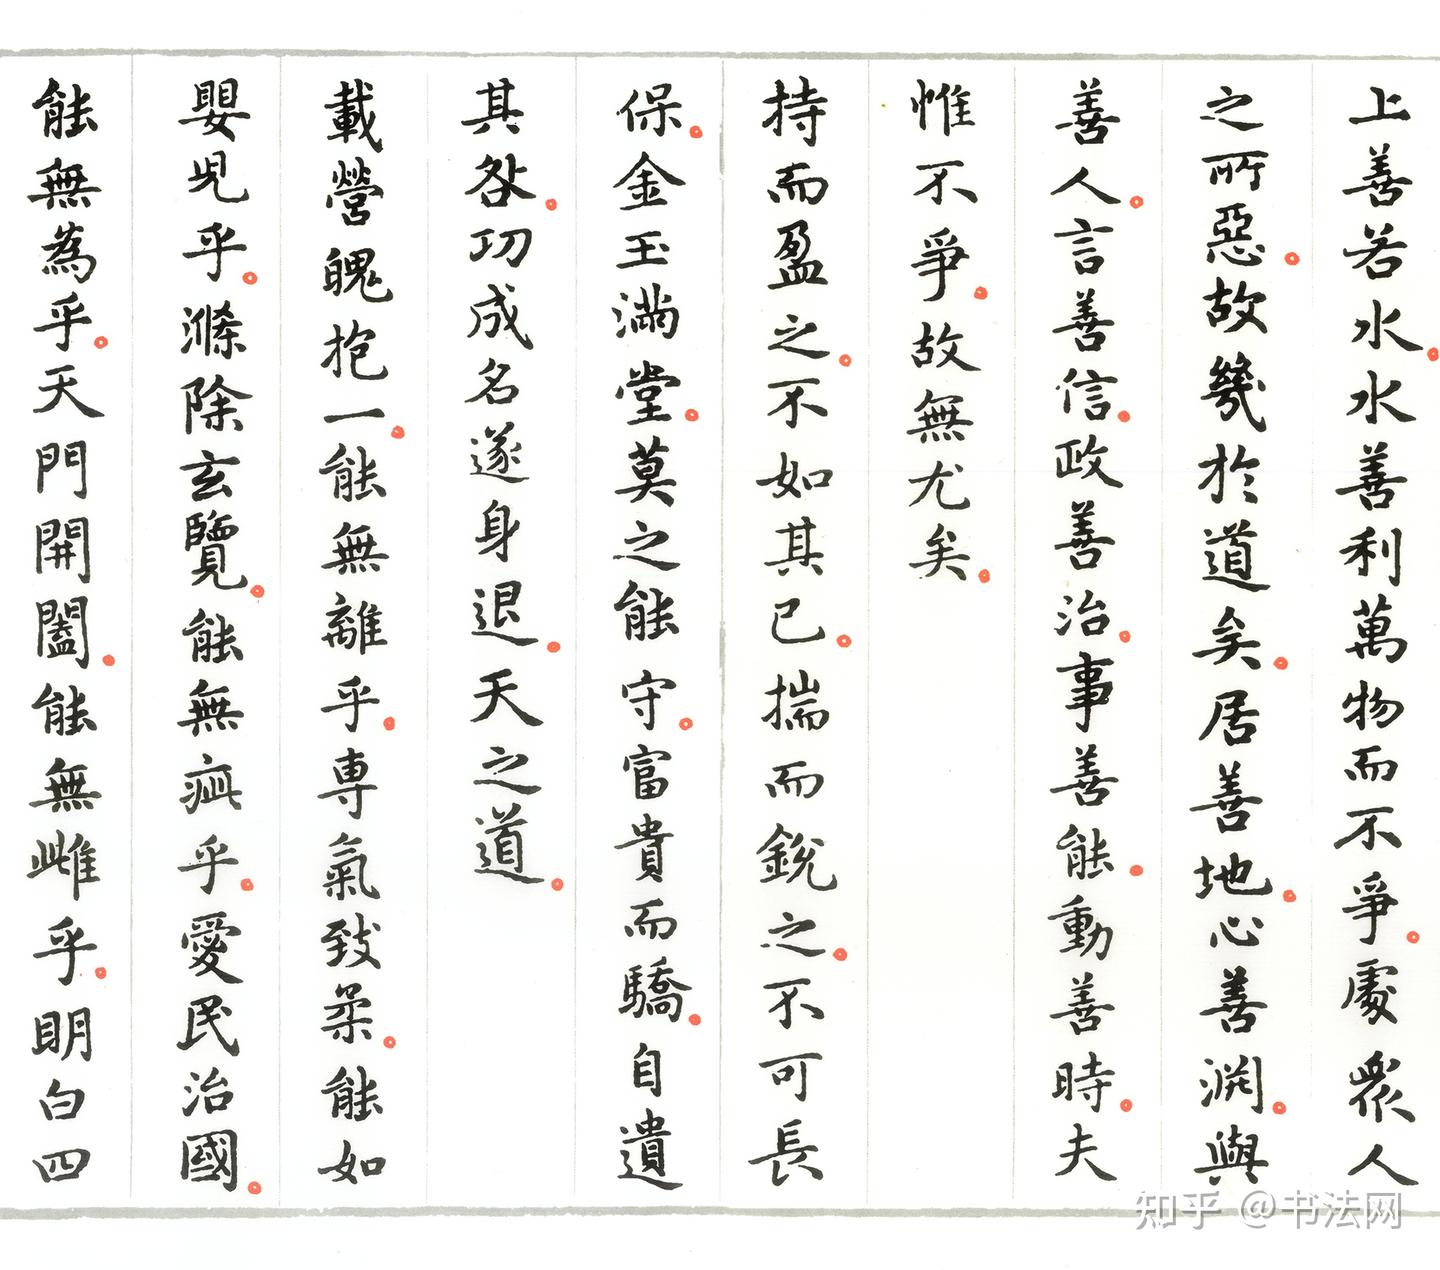 上善若水。水善利萬物而不爭。處衆人
之所惡。故幾於道矣。居善地。心善淵。與
善人。言善信。政善治。事善能。動善時。夫
惟不爭。故無尤矣。
持而盈之。不如其已。揣而銳之。不可長
保。金玉滿堂。莫之能守。富貴而驕。自遺
其咎。功成名遂身退。天之道。
載營魄抱一。能無離乎。専氣致柔。能如
嬰児乎。滌除玄覽。能無疵乎。愛民治國。
能無為乎。天門開闔。能無雌乎。明白四
知乎 @书法网